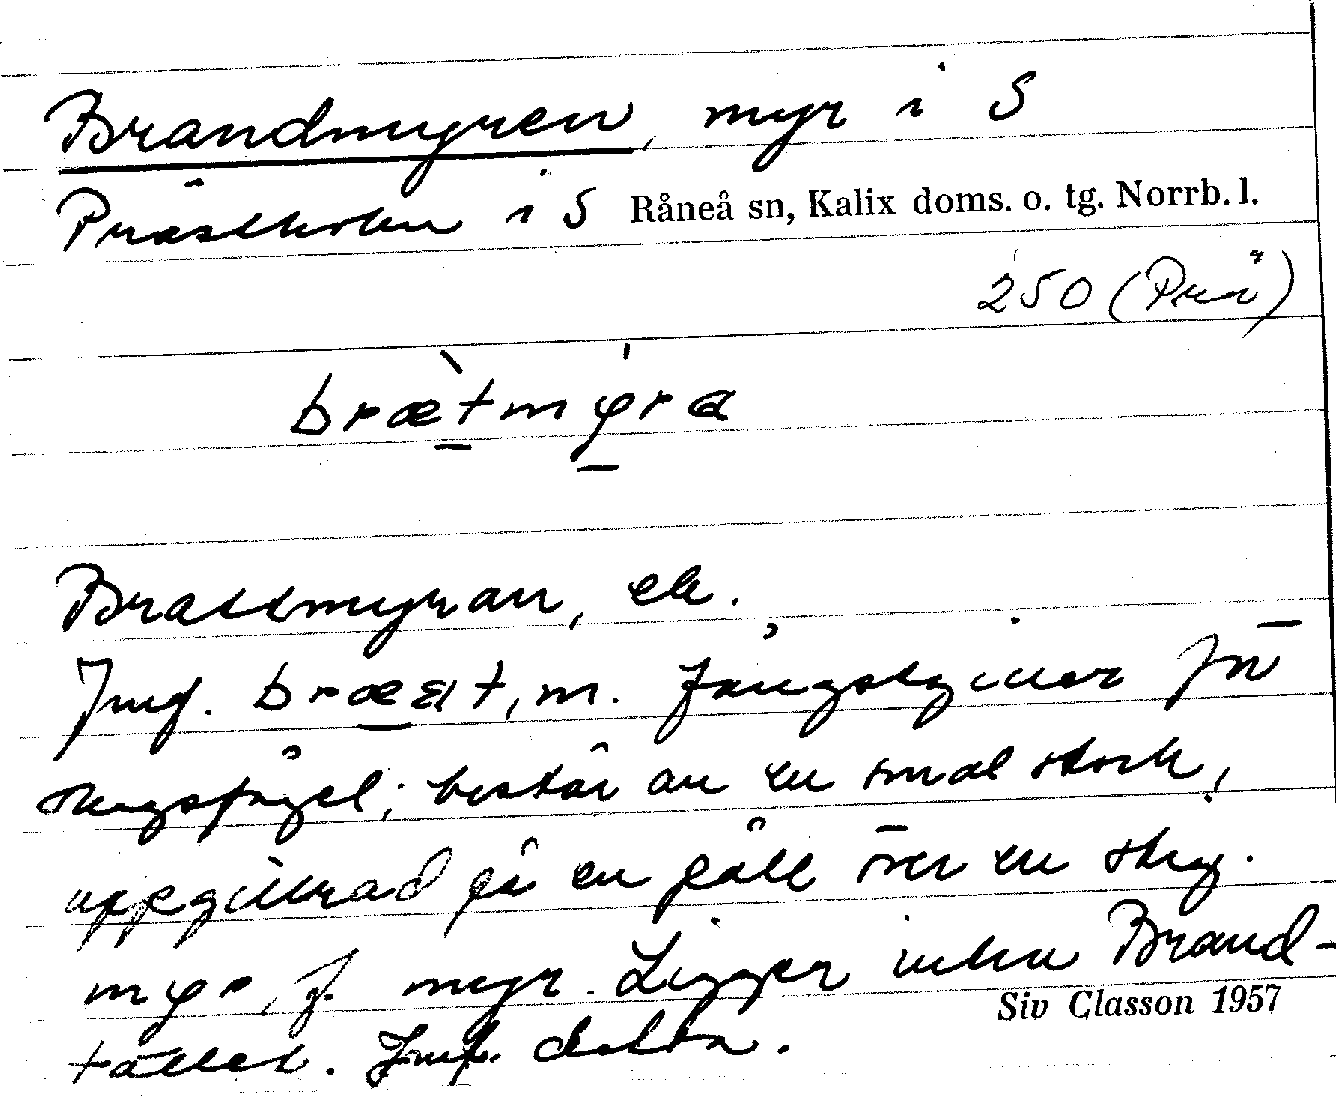 Brandmyren, myr i S
Prästholm i S Råneå sn, Kalix doms. o. tg. Norrb. l.
250 (Prä)
brætmyra
Brattmyran, ek.
Jmf. bræat, m. fångstgiller för
skogsfågel; består av en smal stock,
uppgillrad på en påle över en stig.
myr, f. myr. Ligger intill Brand-
tallet. Jmf. detta.
Siv Classon 1957